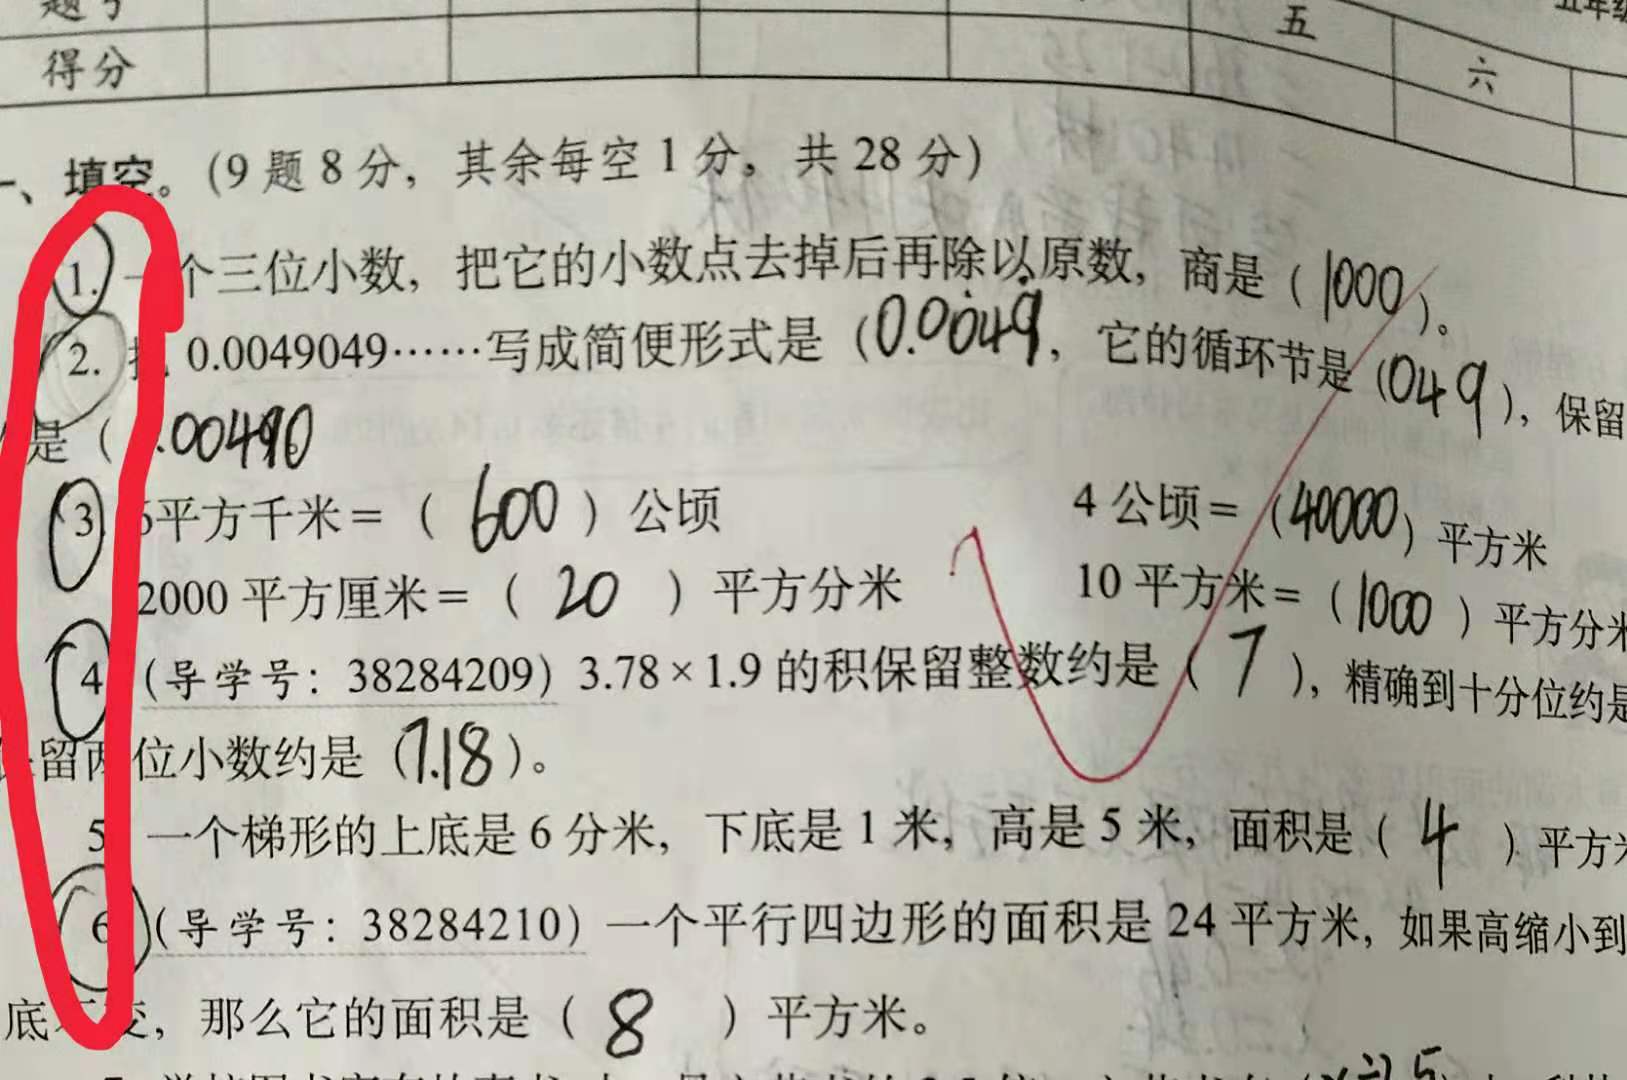 题号 五 五年级
得分 六
一、填空。(9题8分，其余每空1分，共28分)
1. 一个三位小数，把它的小数点去掉后再除以原数，商是(1000)。
2. 把 0.0049049……写成简便形式是(0.00̇49̇，它的循环节是(049)，保留
是( .00490
3 6平方千米=( 600 )公顷 4公顷=(40000)平方米
2000平方厘米=( 20 )平方分米 10平方米=(1000)平方分米
4 (导学号：38284209) 3.78×1.9的积保留整数约是( 7 )，精确到十分位约是
保留两位小数约是(7.18)。
5 一个梯形的上底是6分米，下底是1米，高是5米，面积是( 4 )平方米
6 (导学号：38284210) 一个平行四边形的面积是24平方米，如果高缩小到
底不变，那么它的面积是( 8 )平方米。